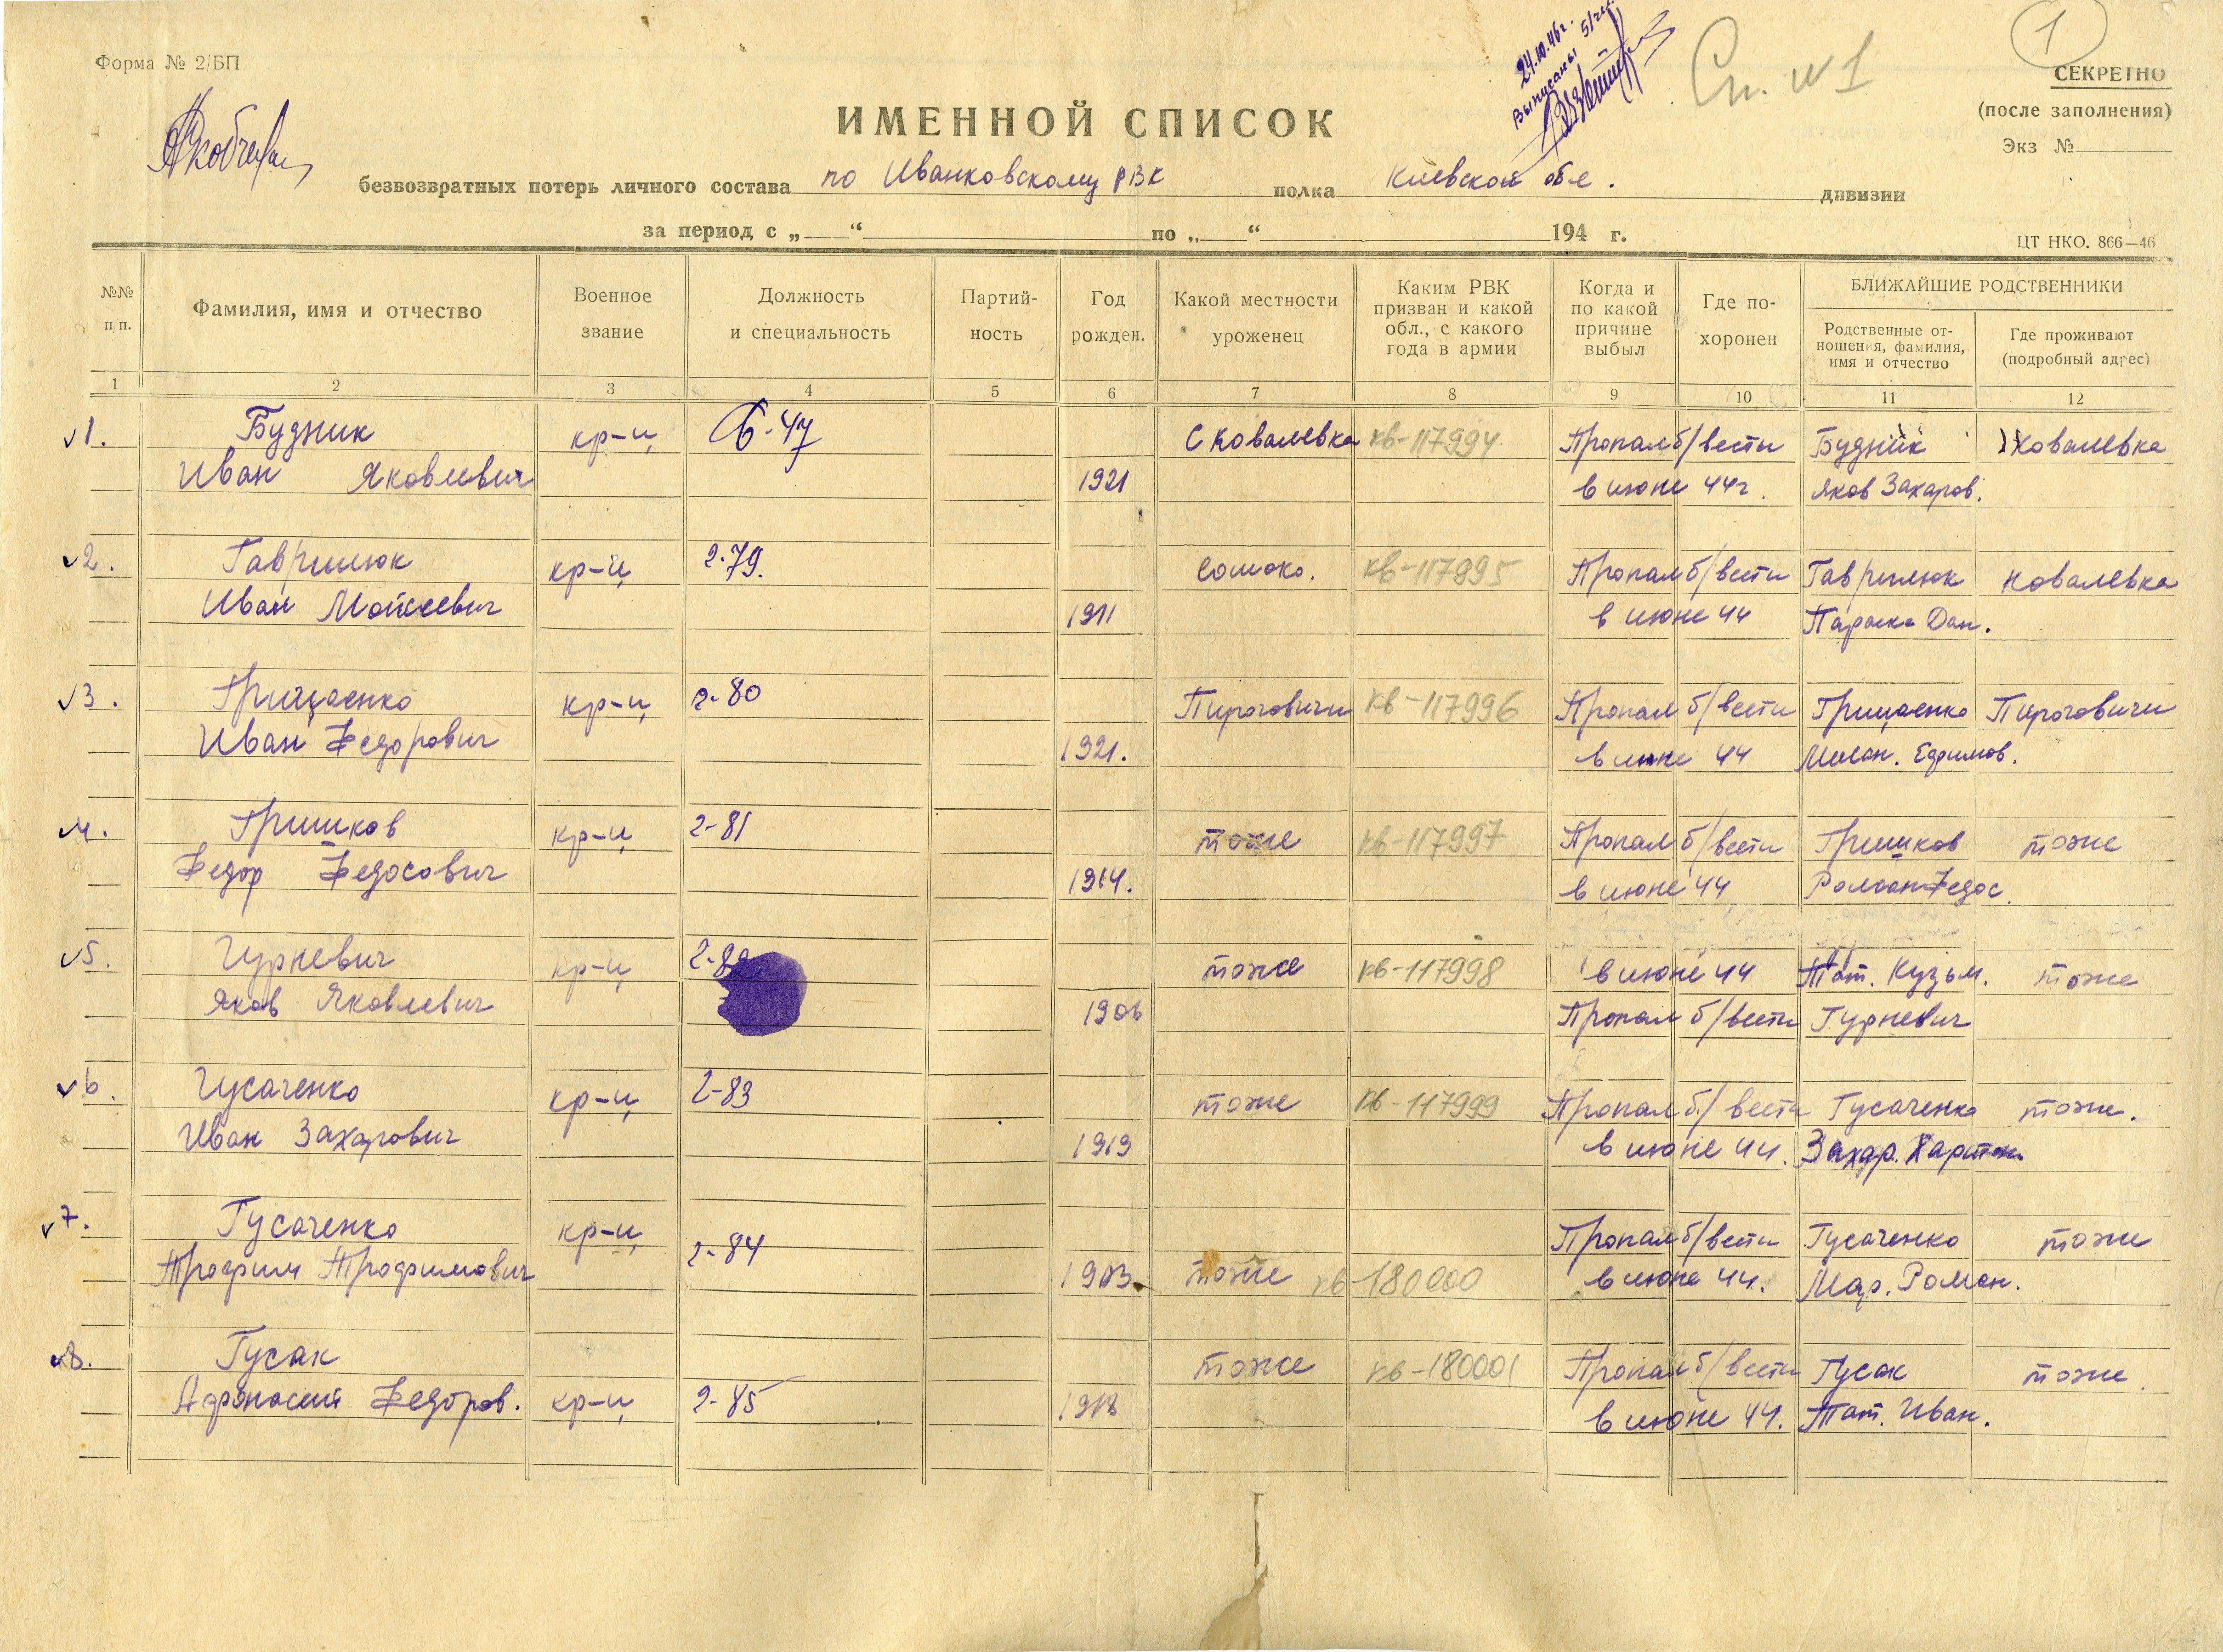 Форма № 2/БП
24.10.46г.
Выписаны
Сп. №1
1
СЕКРЕТНО
(после заполнения)
Экз №
ИМЕННОЙ СПИСОК
безвозвратных потерь личного состава по Иванковскому РВК полка Киевской обл. дивизии
за период с „ “ по „ “ 194 г.
ЦТ НКО. 866—46
№№ п/п. Фамилия, имя и отчество Военное звание Должность и специальность Партий-ность Год рожден. Какой местности уроженец Каким РВК призван и какой обл., с какого года в армии Когда и по какой причине выбыл Где по-хоронен БЛИЖАЙШИЕ РОДСТВЕННИКИ
Родственные от-ношения, фамилия, имя и отчество Где проживают (подробный адрес)
1 2 3 4 5 6 7 8 9 10 11 12
1. Будник кр-ц Б-47 с Ковалевка кв-117994 Пропал б/вести Будник Ковалевка
Иван Яковлевич 1921 в июне 44г. Яков Захаров.
2. Гаврилюк кр-ц 2-79. кв-117995 Пропал б/вести Гаврилюк Ковалевка
Иван Мойсеевич 1911 в июне 44 Параска Дан.
3. Грищенко кр-ц 2-80 Пироговичи кв-117996 Пропал б/вести Грищенко Пироговичи
Иван Федорович 1921. в июне 44 Мелан. Ефимов.
4. Гришков кр-ц 2-81 тоже кв-117997 Пропал б/вести Гришков тоже
Федор Федосович 1914. в июне 44 Роман Федос.
5. Гурневич кр-ц 2-82 тоже кв-117998 в июне 44 Тат. Кузьм. тоже
Яков Яковлевич 1906 Пропал б/вести Гурневич
6. Гусаченко кр-ц 2-83 тоже кв-117999 Пропал б/вести Гусаченко тоже.
Иван Захарович 1919 в июне 44. Захар.
7. Гусаченко кр-ц 2-84 Пропал б/вести Гусаченко тоже
Трофим Трофимович 1903. тоже кв-180000 в июне 44. Мар. Роман.
8. Гусак тоже кв-180001 Пропал б/вести Гусак тоже
Афонасий Федоров. кр-ц 2-85 1918 в июне 44. Тат. Иван.